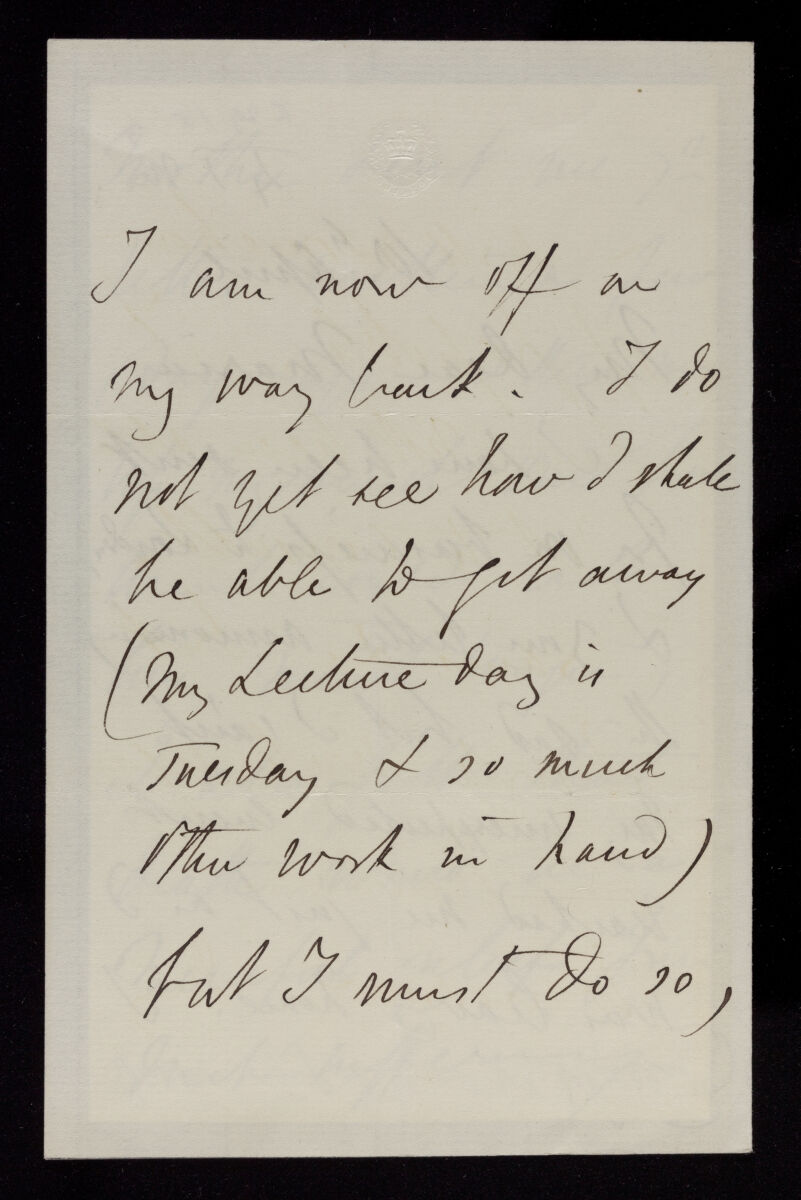 I am now off on
my way back. I do
not yet see how I shall
be able to get away
(My Lecture day is
Tuesday & so much
other work in hand)
but I must do so,